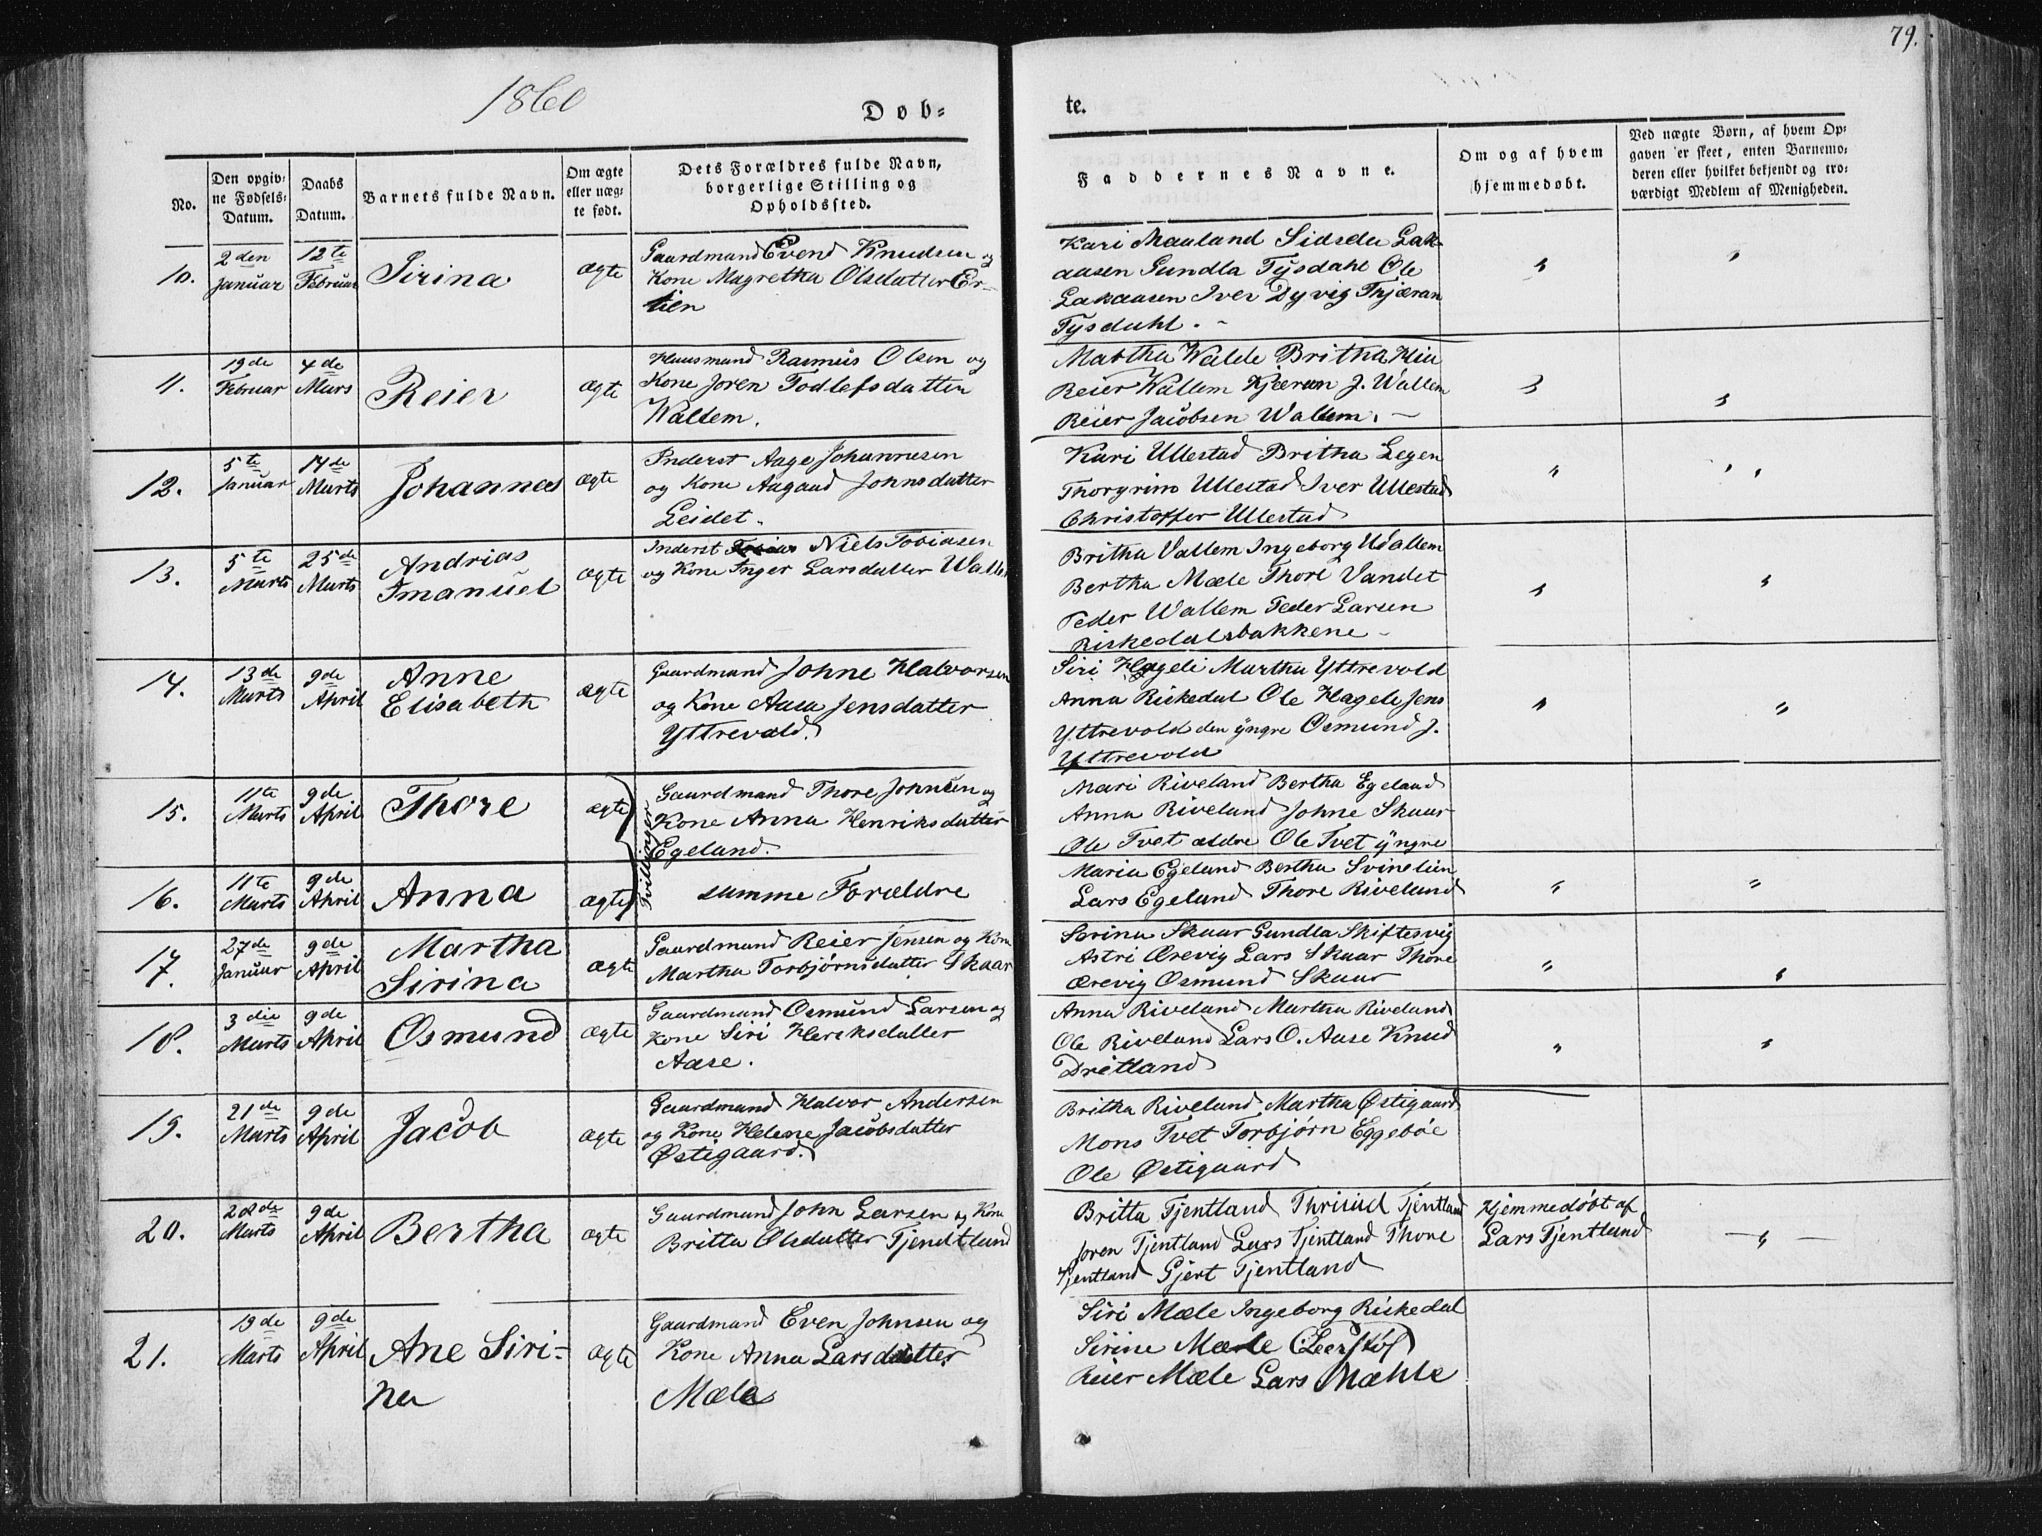 79.
1860
Døb-
te.
No.
Den opgiv-
ne Fødsels-
Datum.
Daabs
Datum.
Barnets fulde Navn.
Om ægte
eller uæg-
te født.
Dets Forældres fulde Navn,
borgerlige Stilling og
Opholdssted.
Faddernes Navne.
Om og af hvem
hjemmedøbt.
Ved uægte Børn, af hvem Op-
gaven er skeet, enten Barnemo-
deren eller hvilket bekjendt og tro-
værdigt Medlem af Menigheden.
10.
2den
Januar
12te
Februar
Sirina
ægte
Gaardmand Evend Knudsen og
Kone Magretha Olsdatter Er-
tien
Kari Mauland Sidsela Lak-
aasen Gundla Tysdahl Ole
Lakaasen Iver Dyvig Thjæran
Tysdahl. -
11.
19de
Februar
4de
Mars
Reier
ægte
Huusmand Rasmus Olsen og
Kone Joren Todlefsdatter
Wallem.
Martha Walde Britha Hia
Reier Wallem Kjæran J. Wallem
Reier Jacobsen Wallem. -
12.
5te
Januar
14de
Marts
Johannes
ægte
Inderst Aage Johannesen
og Kone Aagaud Johnsdatter
Leidet.
Kari Ullestad Britha Legen
Thorgrim Ullestad Iver Ullestad
Christoffer Ullestad
13.
5te
Marts
25de
Marts
Andrias
Imanuel
ægte
Inderst Niels Tobiasen
og Kone Inger Larsdatter Walle
Britha Vallem Ingeborg Wallem
Bertha Mæle Thore Vandet
Peder Wallem Peder Larsen
Riskedalsbakkene -
14.
13de
Marts
9de
April
Anne
Elisabeth
ægte
Gaardmand Johne Halvorsen
og Kone Aasa Jensdatter
Yttrevold.
Siri Hageli Martha Yttrevold
Anna Riskedal Ole Hagele Jens
Yttrevold den yngre Osmund J.
Yttrevold
15.
11te
Marts
9de
April
Thore
ægte
Tvillinger
Gaardmand Thore Johnsen og
Kone Anna Henriksdatter
Egeland.
Mari Riveland Bertha Egeland
Anna Riveland Johne Skaar
Ole Tvet ældre Ole Tvet yngre
16.
11te
Marts
9de
April
Anna
ægte
samme Forældre
Maria Egeland Bertha Svinelien
Lars Egeland Thore Riveland
17.
27de
Januar
9de
April
Martha
Sirina
ægte
Gaardmand Reier Jensen og Kone
Martha Torbjørnsdatter Skaar
Serina Skaar Gundla Skiftesvig
Astri Ørevig Lars Skaar Thore
Ørevig Osmund Skaar
18.
3die
Marts
9de
April
Osmund
ægte
Gaardmand Osmund Larsen og
Kone Siri Hersksdatter
Aase.
Anna Riveland Martha Riveland
Ole Riveland Lars O. Aase Knud
Dretland
19.
21de
Marts
9de
April
Jacob
ægte
Gaardmand Halvor Andersen
og Kone Helene Jacobsdatter
Østigaard.
Britha Riveland Martha Østigaard
Mons Tvet Torbjørn Eggebøe
Ole Østigaard
20.
28de
Marts
9de
April
Bertha
ægte
Gaardmand John Larsen og Kone
Britta Olsdatter Tjendtland
Britta Tjentland Thrisid Tjentland
Joren Tjentland Lars Tjentland Thore
Tjentland Gjert Tjentland
Hjemmedøbt af
Lars Tjentland
21.
19de
Marts
9de
April
Ane Siri-
na
ægte
Gaardmand Even Johnsen og
Kone Anna Larsdatter
Mæle
Siri Mæle Ingeborg Riskedal
Sirine Mæle
Reier Mæle Lars Mæhle